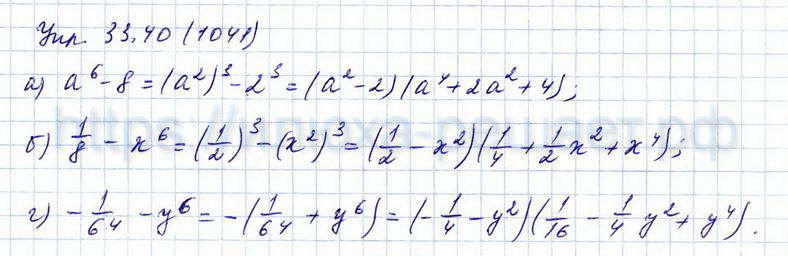 Упр. 33.40 (1041)
а) a⁶ - 8 = (a²)³ - 2³ = (a² - 2)(a⁴ + 2a² + 4);
б) 1/8 - x⁶ = (1/2)³ - (x²)³ = (1/2 - x²)(1/4 + 1/2 x² + x⁴);
г) - 1/64 - y⁶ = -(1/64 + y⁶) = (- 1/4 - y²)(1/16 - 1/4 y² + y⁴).